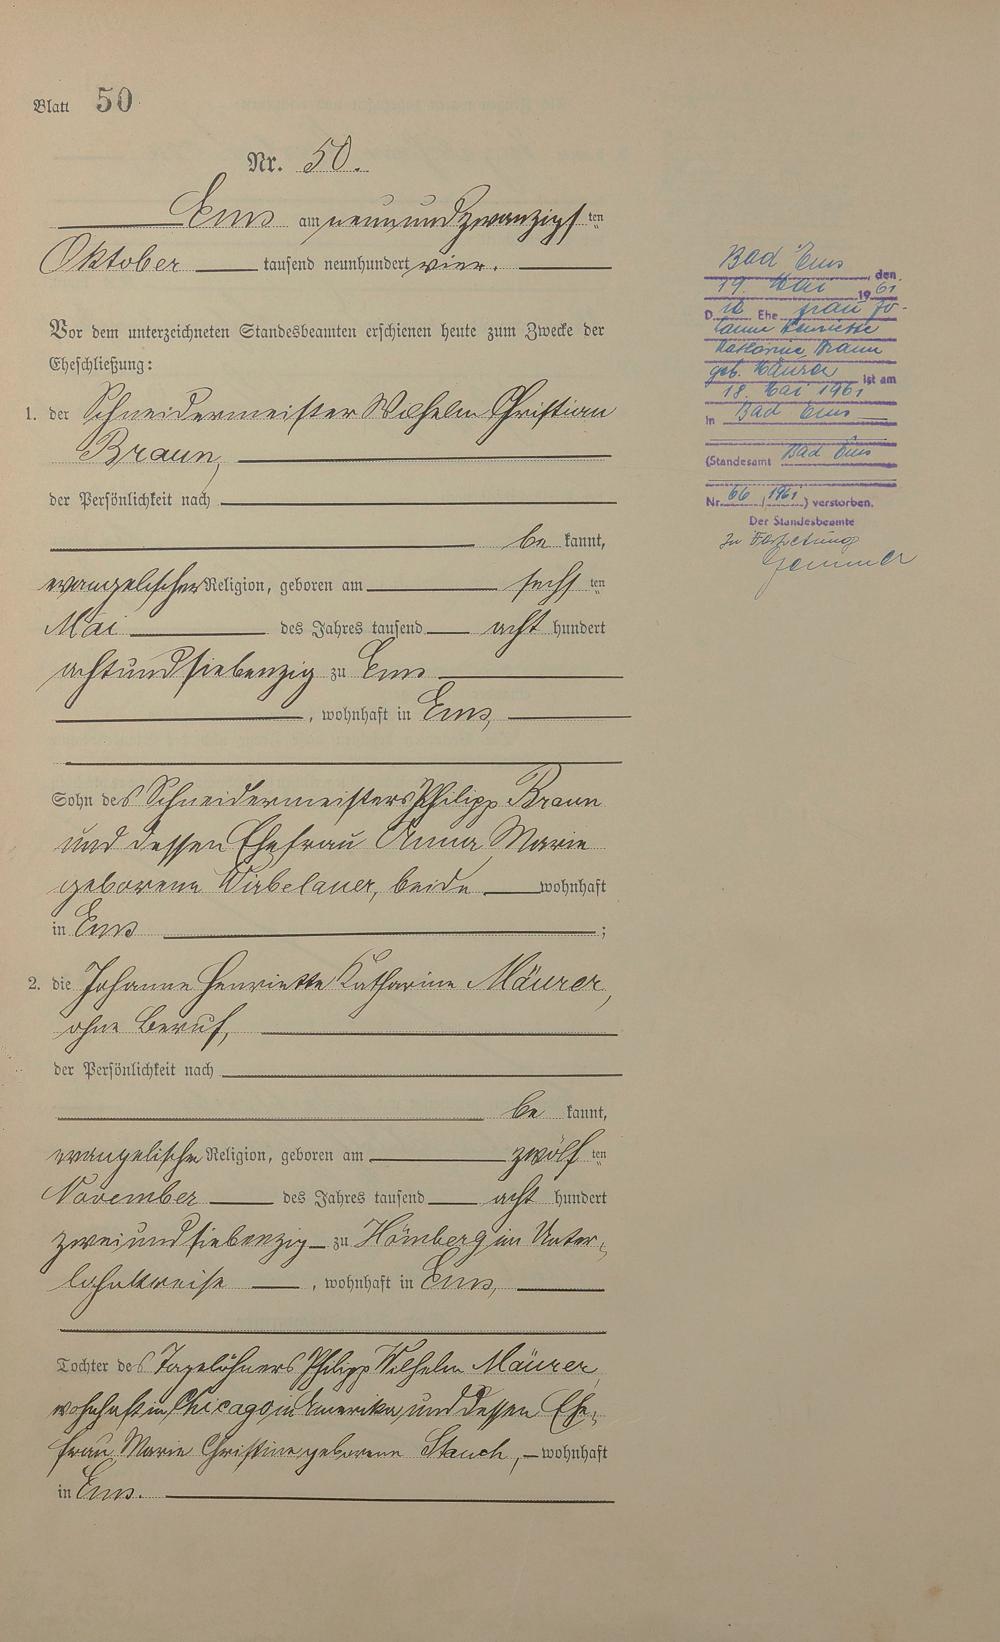 Blatt 50
Nr. 50.
Ems am neunundzwanzigsten
Oktober tausend neunhundert vier.
Vor dem unterzeichneten Standesbeamten erschienen heute zum Zwecke der
Eheschließung:
1. der Schneidermeister Wilhelm Christian
Braun,
der Persönlichkeit nach
be kannt,
evangelischer Religion, geboren am sechsten
Mai des Jahres tausend acht hundert
achtundsiebenzig zu Ems
, wohnhaft in Ems,
Sohn des Schneidermeisters Philipp Braun
und dessen Ehefrau Anna Marie
geborene Wirbelauer, beide wohnhaft
in Ems ;
2. die Johanne Henriette Katharine Mäurer,
ohne Beruf,
der Persönlichkeit nach
be kannt,
evangelische Religion, geboren am zwölften
November des Jahres tausend acht hundert
zweiundsiebenzig zu Hömberg im Unter-
lahnkreise , wohnhaft in Ems,
Tochter des Tagelöhners Philipp Wilhelm Mäurer,
wohnhaft in Chicago in Amerika und dessen Ehe-
frau Marie Christine geborene Stauch, wohnhaft
in Ems.
Bad Ems, den
19. Mai 1961
D ie Ehefrau Jo-
hanne Henriette
Katharine Braun
geb. Mäurer ist am
18. Mai 1961
in Bad Ems
(Standesamt Bad Ems
Nr. 66 / 1961) verstorben.
Der Standesbeamte
In Vertretung